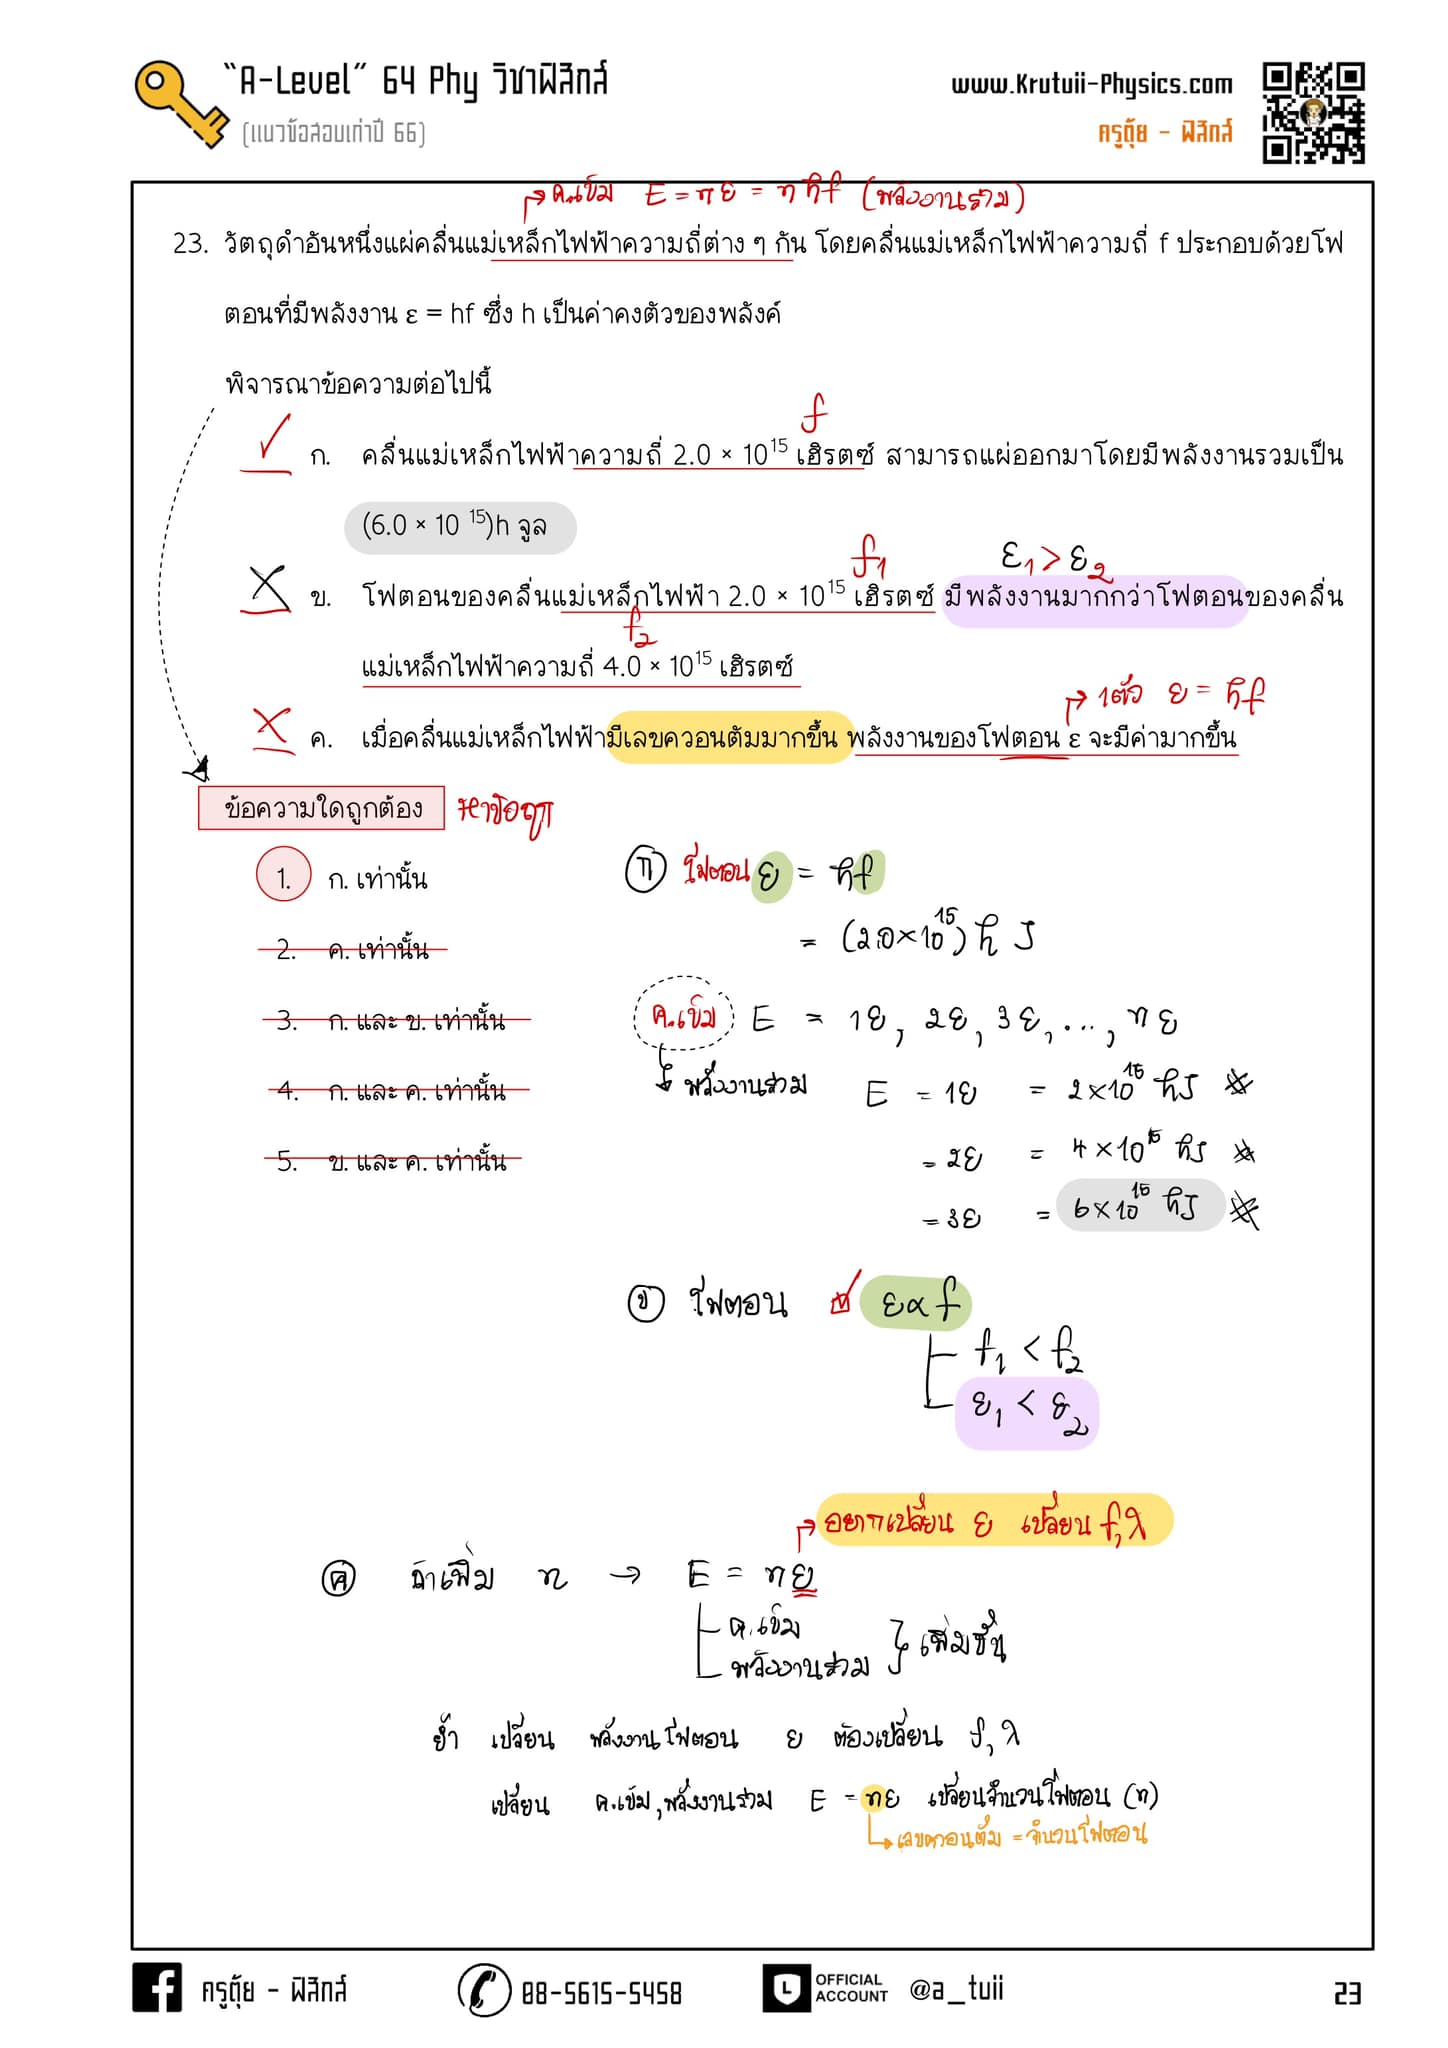 "A-Level" 64 Phy วิชาฟิสิกส์
(แนวข้อสอบเก่าปี 66)
www.Krutuii-Physics.com
ครูตุ้ย - ฟิสิกส์
ค.เข้ม E = nε = nhf (พลังงานรวม)
23. วัตถุดำอันหนึ่งแผ่คลื่นแม่เหล็กไฟฟ้าความถี่ต่าง ๆ กัน โดยคลื่นแม่เหล็กไฟฟ้าความถี่ f ประกอบด้วยโฟ
ตอนที่มีพลังงาน ε = hf ซึ่ง h เป็นค่าคงตัวของพลังค์
พิจารณาข้อความต่อไปนี้
f
ก. คลื่นแม่เหล็กไฟฟ้าความถี่ 2.0 × 10¹⁵ เฮิรตซ์ สามารถแผ่ออกมาโดยมีพลังงานรวมเป็น
(6.0 × 10 ¹⁵)h จูล
f₁ ε₁ > ε₂
ข. โฟตอนของคลื่นแม่เหล็กไฟฟ้า 2.0 × 10¹⁵ เฮิรตซ์ มีพลังงานมากกว่าโฟตอนของคลื่น
f₂
แม่เหล็กไฟฟ้าความถี่ 4.0 × 10¹⁵ เฮิรตซ์
1ตัว ε = hf
ค. เมื่อคลื่นแม่เหล็กไฟฟ้ามีเลขควอนตัมมากขึ้น พลังงานของโฟตอน ε จะมีค่ามากขึ้น
ข้อความใดถูกต้อง หาข้อถูก
1. ก. เท่านั้น
2. ค. เท่านั้น
3. ก. และ ข. เท่านั้น
4. ก. และ ค. เท่านั้น
5. ข. และ ค. เท่านั้น
ก โฟตอน ε = hf
= (2.0×10¹⁵) h J
ค.เข้ม E = 1ε, 2ε, 3ε, ..., nε
พลังงานรวม E = 1ε = 2×10¹⁵ hJ
= 2ε = 4×10¹⁵ hJ
= 3ε = 6×10¹⁵ hJ
ข โฟตอน ε∝f
f₁ < f₂
ε₁ < ε₂
อยากเปลี่ยน ε เปลี่ยน f,λ
ค ถ้าเพิ่ม n → E = nε
ค.เข้ม
พลังงานรวม } เพิ่มขึ้น
ย้ำ เปลี่ยน พลังงานโฟตอน ε ต้องเปลี่ยน f, λ
เปลี่ยน ค.เข้ม, พลังงานรวม E = nε เปลี่ยนจำนวนโฟตอน (n)
เลขควอนตัม = จำนวนโฟตอน
ครูตุ้ย - ฟิสิกส์
08-5615-5458
L
OFFICIAL
ACCOUNT
@a_tuii
23